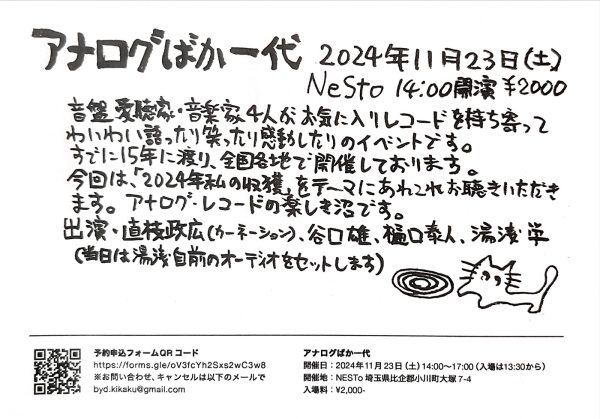 アナログばか一代 2024年11月23日(土)
NeSTo 14:00開演 ¥2000
音盤愛聴家・音楽家4人がお気に入りレコードを持ち寄って
わいわい語ったり笑ったり感動したりのイベントです。
すでに15年に渡り、全国各地で開催しております。
今回は、「2024年私の収獲」をテーマにあれこれお聴きいただき
ます。アナログ・レコードの楽しき沼です。
出演・直枝政広(カーネーション)、谷口雄、樋口泰人、湯浅学
(当日は湯浅自前のオーディオをセットします)
予約申込フォームQRコード
https://forms.gle/oV3fcYh2Sxs2wC3w8
※お問い合わせ、キャンセルは以下のメールで
byd.kikaku@gmail.com
アナログばか一代
開催日：2024年11月23日(土)14:00〜17:00(入場は13:30から)
開催地：NESTo 埼玉県比企郡小川町大塚7-4
入場料：¥2,000-